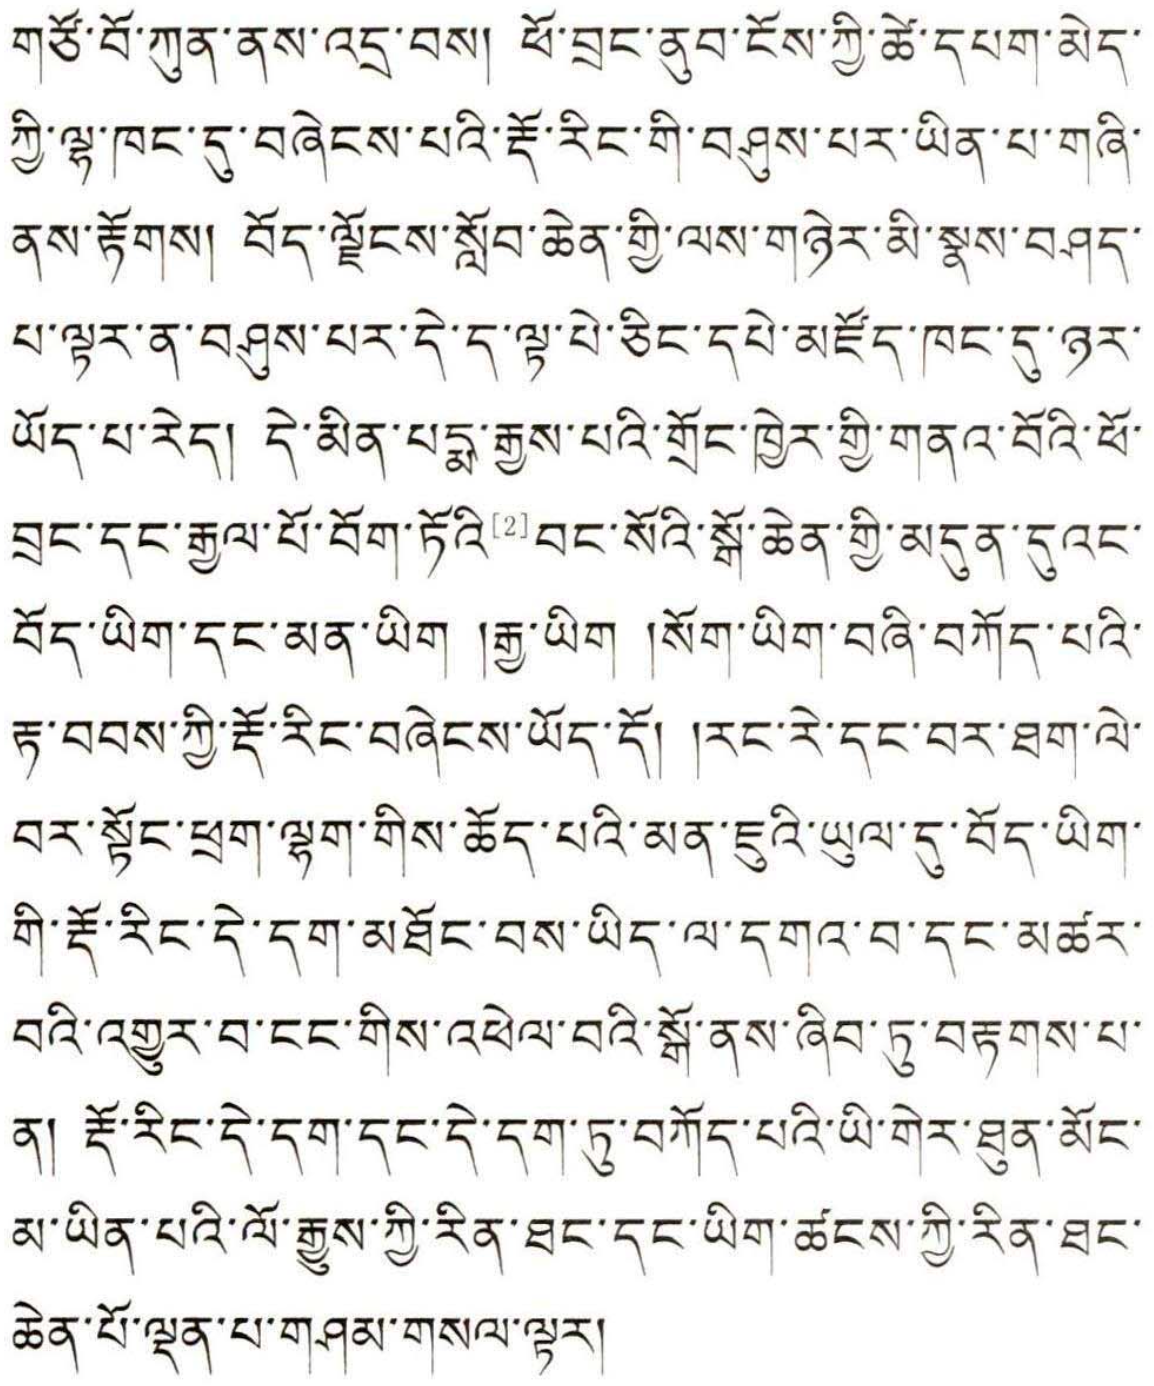 གཙོ་བོ་ཀུན་ནས་འདྲ་བས། ཕོ་བྲང་ནུབ་ངོས་ཀྱི་ཚེ་དཔག་མེད་
ཀྱི་ལྷ་ཁང་དུ་བཞེངས་པའི་རྡོ་རིང་གི་བཤུས་པར་ཡིན་པ་གཞི་
ནས་རྟོགས། བོད་ལྗོངས་སློབ་ཆེན་གྱི་ལས་གཉེར་མི་སྣས་བཤད་
པ་ལྟར་ན་བཤུས་པར་དེ་ད་ལྟ་པེ་ཅིང་དཔེ་མཛོད་ཁང་དུ་ཉར་
ཡོད་པ་རེད། དེ་མིན་པདྨ་རྒྱས་པའི་གྲོང་ཁྱེར་གྱི་གནའ་བོའི་ཕོ་
བྲང་དང་རྒྱལ་པོ་བོག་ཏོའི་[2]བང་སོའི་སྒོ་ཆེན་གྱི་མདུན་དུའང་
བོད་ཡིག་དང་མན་ཡིག །རྒྱ་ཡིག །སོག་ཡིག་བཞི་བཀོད་པའི་
རྟ་བབས་ཀྱི་རྡོ་རིང་བཞེངས་ཡོད་དོ། །རང་རེ་དང་བར་ཐག་ལེ་
བར་སྟོང་ཕྲག་ལྷག་གིས་ཆོད་པའི་མན་ཇུའི་ཡུལ་དུ་བོད་ཡིག་
གི་རྡོ་རིང་དེ་དག་མཐོང་བས་ཡིད་ལ་དགའ་བ་དང་མཚར་
བའི་འགྱུར་བ་ངང་གིས་འཕེལ་བའི་སྒོ་ནས་ཞིབ་ཏུ་བརྟགས་པ་
ན། རྡོ་རིང་དེ་དག་དང་དེ་དག་ཏུ་བཀོད་པའི་ཡི་གེར་ཐུན་མོང་
མ་ཡིན་པའི་ལོ་རྒྱུས་ཀྱི་རིན་ཐང་དང་ཡིག་ཚངས་ཀྱི་རིན་ཐང་
ཆེན་པོ་ལྡན་པ་གཤམ་གསལ་ལྟར།